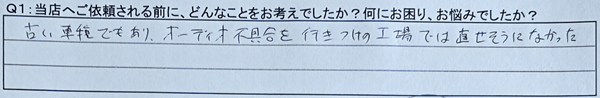 Q1：当店へご依頼される前に、どんなことをお考えでしたか？何にお困り、お悩みでしたか？
古い車種でもあり、オーディオ不具合を行きつけの工場では直せそうになかった